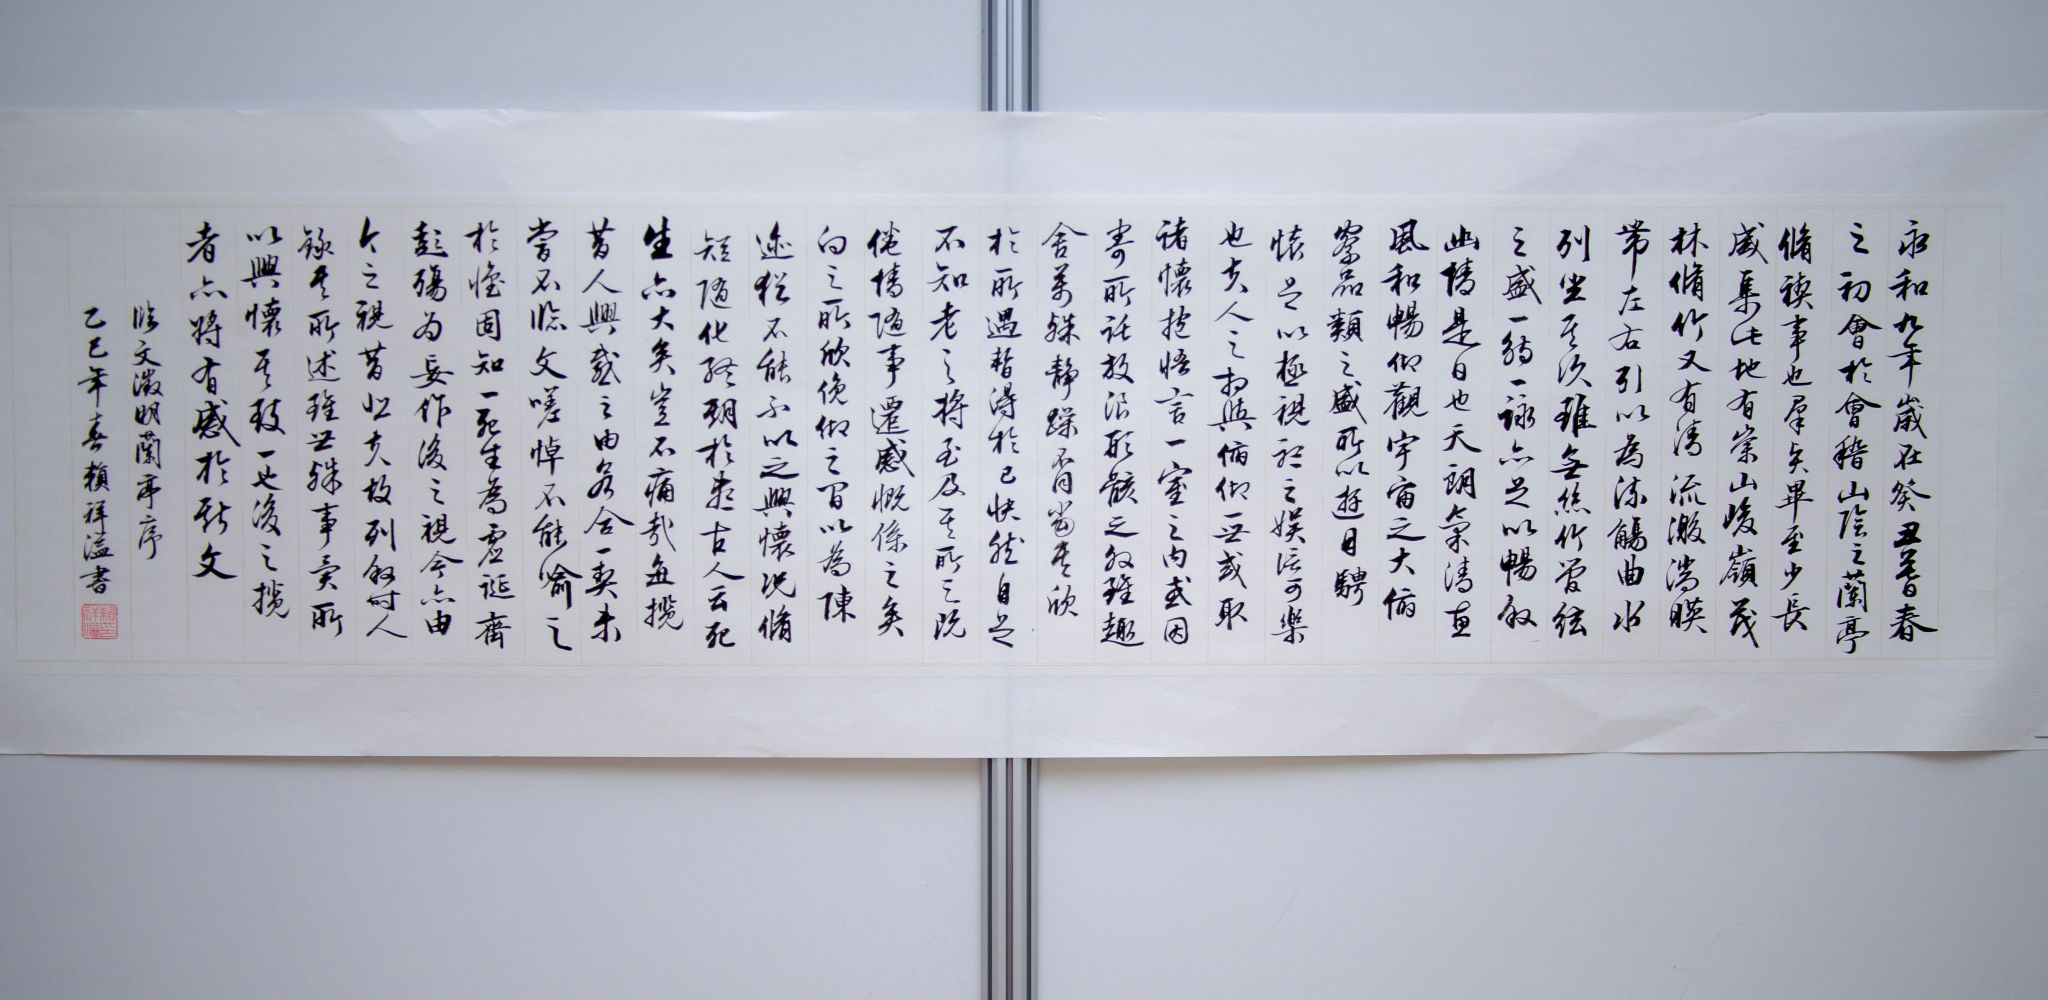 永和九年歲在癸丑暮春
之初會於會稽山陰之蘭亭
脩禊事也羣賢畢至少長
咸集此地有崇山峻嶺茂
林脩竹又有清流激湍暎
帶左右引以為流觴曲水
列坐其次雖無絲竹管絃
之盛一觴一詠亦足以暢敘
幽情是日也天朗氣清惠
風和暢仰觀宇宙之大俯
察品類之盛所以遊目騁
懷足以極視聽之娛信可樂
也夫人之相與俯仰一世或取
諸懷抱悟言一室之內或因
寄所託放浪形骸之外雖趣
舍萬殊靜躁不同當其欣
於所遇暫得於己快然自足
不知老之將至及其所之既
倦情隨事遷感慨係之矣
向之所欣俛仰之間以為陳
迹猶不能不以之興懷況脩
短隨化終期於盡古人云死
生亦大矣豈不痛哉每攬
昔人興感之由若合一契未
嘗不臨文嗟悼不能喻之
於懷固知一死生為虛誕齊
彭殤為妄作後之視今亦由
今之視昔悲夫故列敘時人
錄其所述雖世殊事異所
以興懷其致一也後之攬
者亦將有感於斯文
臨文徵明蘭亭序
乙巳年春賴祥溢書